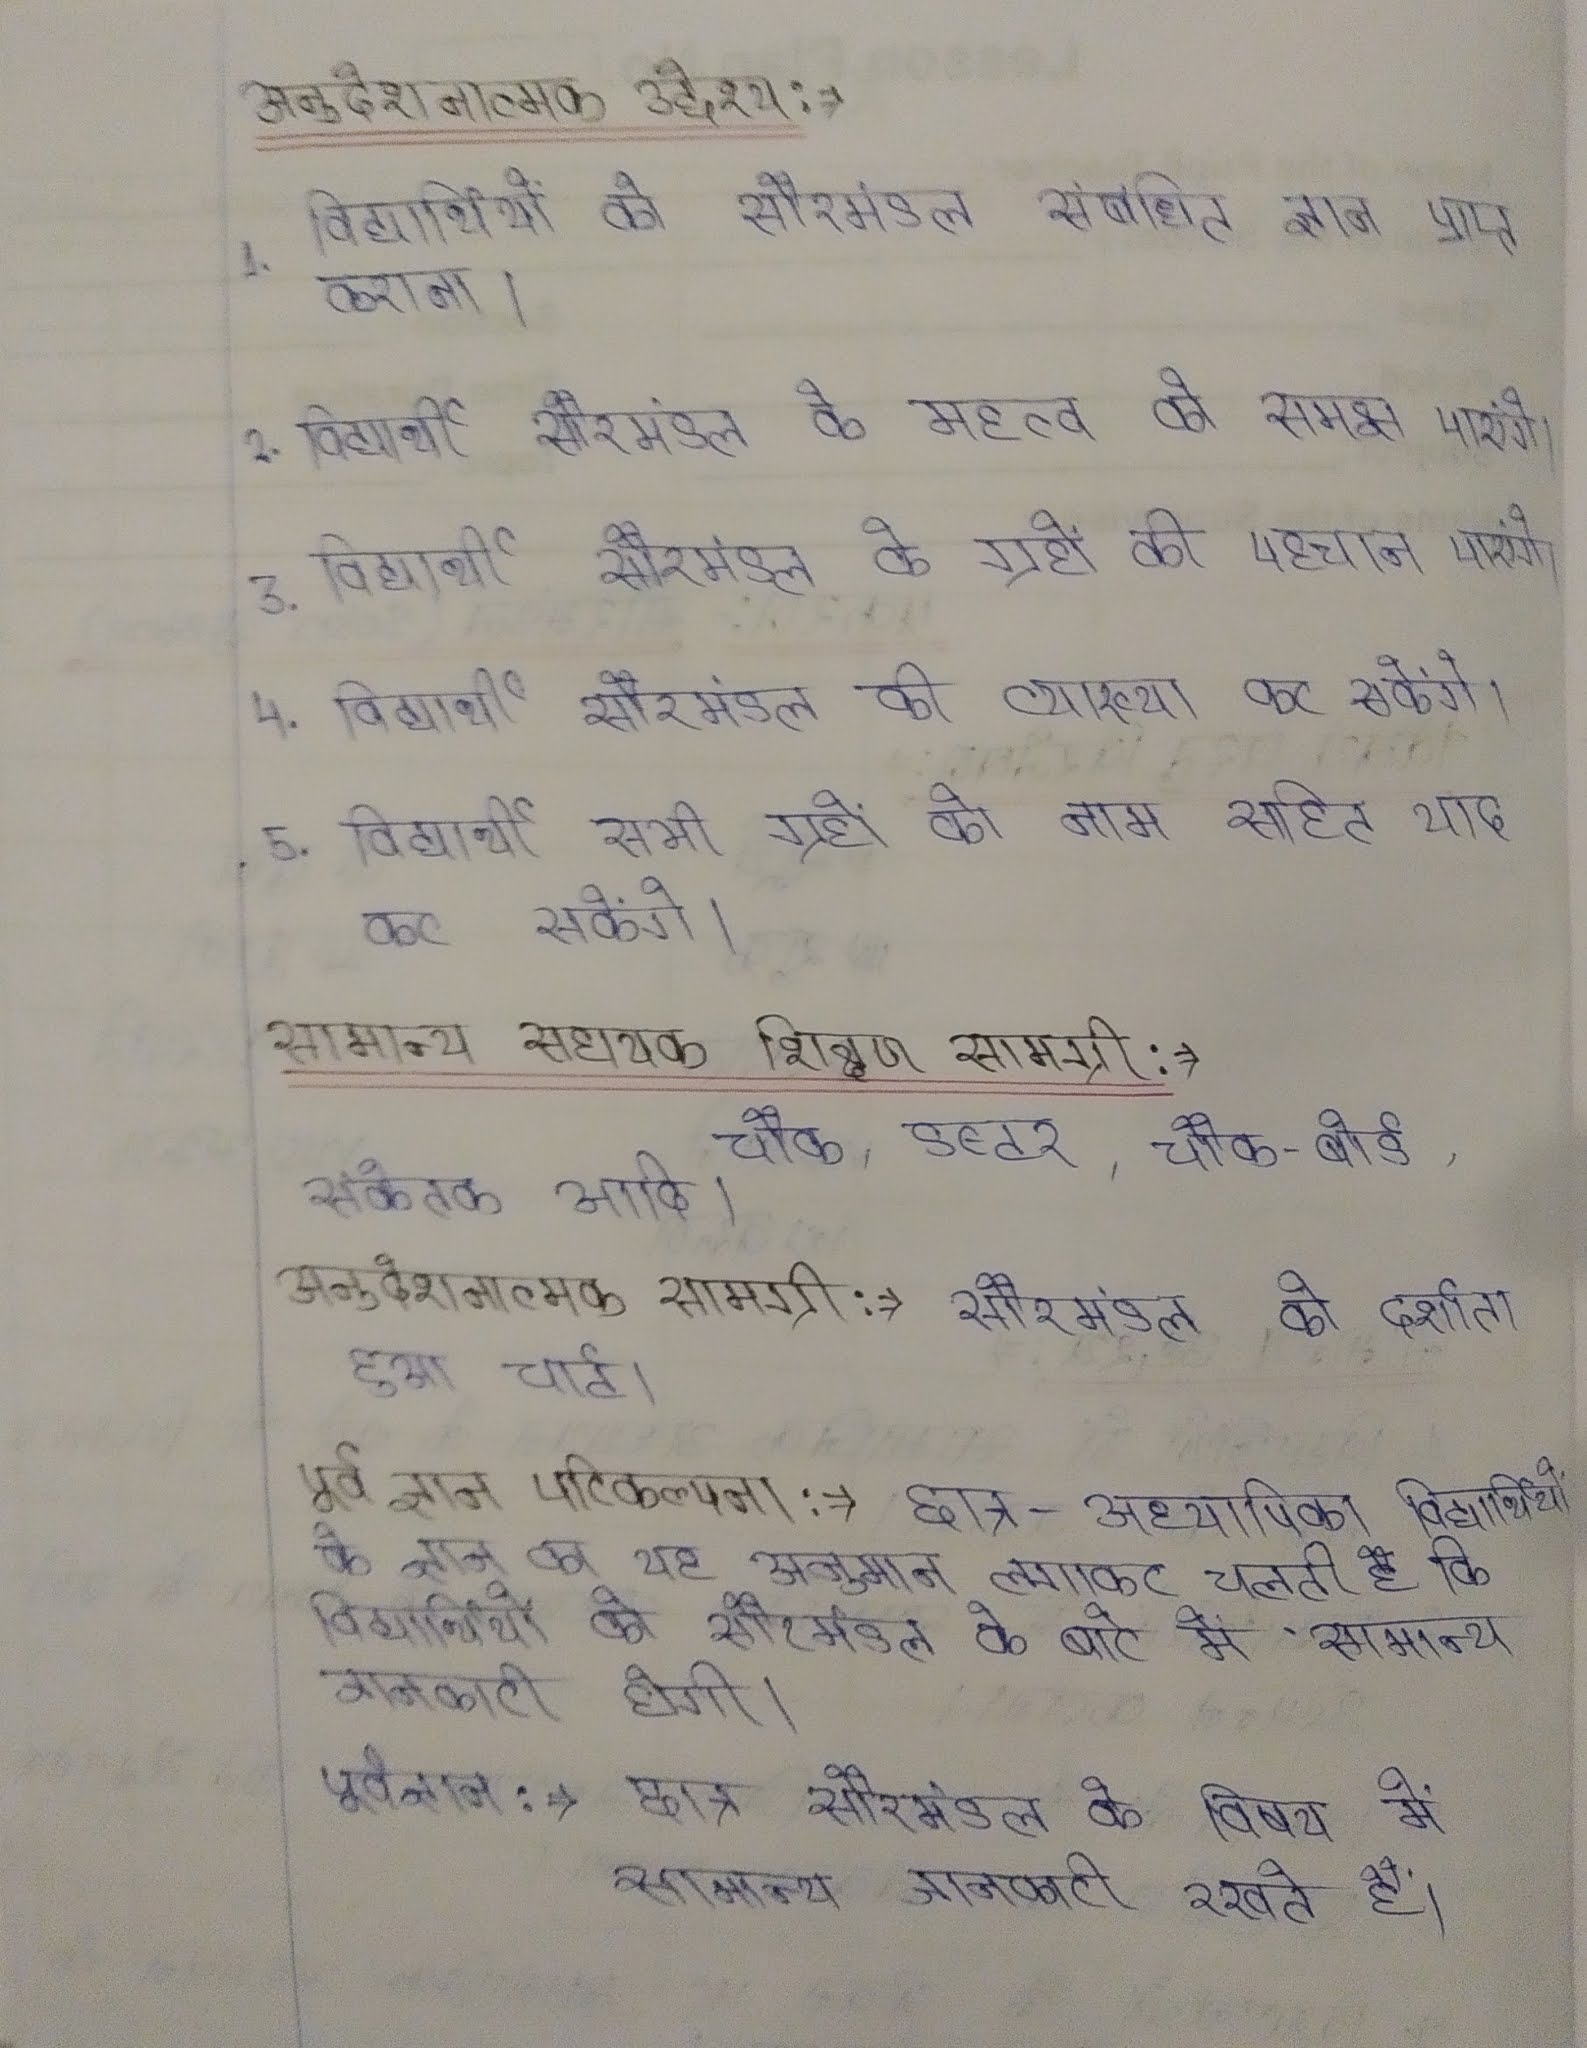 अनुदेशनात्मक उद्देश्य :→
1. विद्यार्थियों को सौरमंडल संबंधित ज्ञान प्राप्त
कराना।
2. विद्यार्थी सौरमंडल के महत्व को समझ पाएंगे।
3. विद्यार्थी सौरमंडल के ग्रहों की पहचान पाएंगे।
4. विद्यार्थी सौरमंडल की व्याख्या कर सकेंगे।
5. विद्यार्थी सभी ग्रहों को नाम सहित याद
कर सकेंगे।
सामान्य सहायक शिक्षण सामग्री :→
चौक, डस्टर, चौक-बोर्ड,
संकेतक आदि।
अनुदेशनात्मक सामग्री :→ सौरमंडल को दर्शाता
हुआ चार्ट।
पूर्व ज्ञान परिकल्पना :→ छात्र-अध्यापिका विद्यार्थियों
के ज्ञान का यह अनुमान लगाकर चलती है कि
विद्यार्थियों को सौरमंडल के बारे में सामान्य
जानकारी होगी।
पूर्वज्ञान :→ छात्र सौरमंडल के विषय में
सामान्य जानकारी रखते हैं।